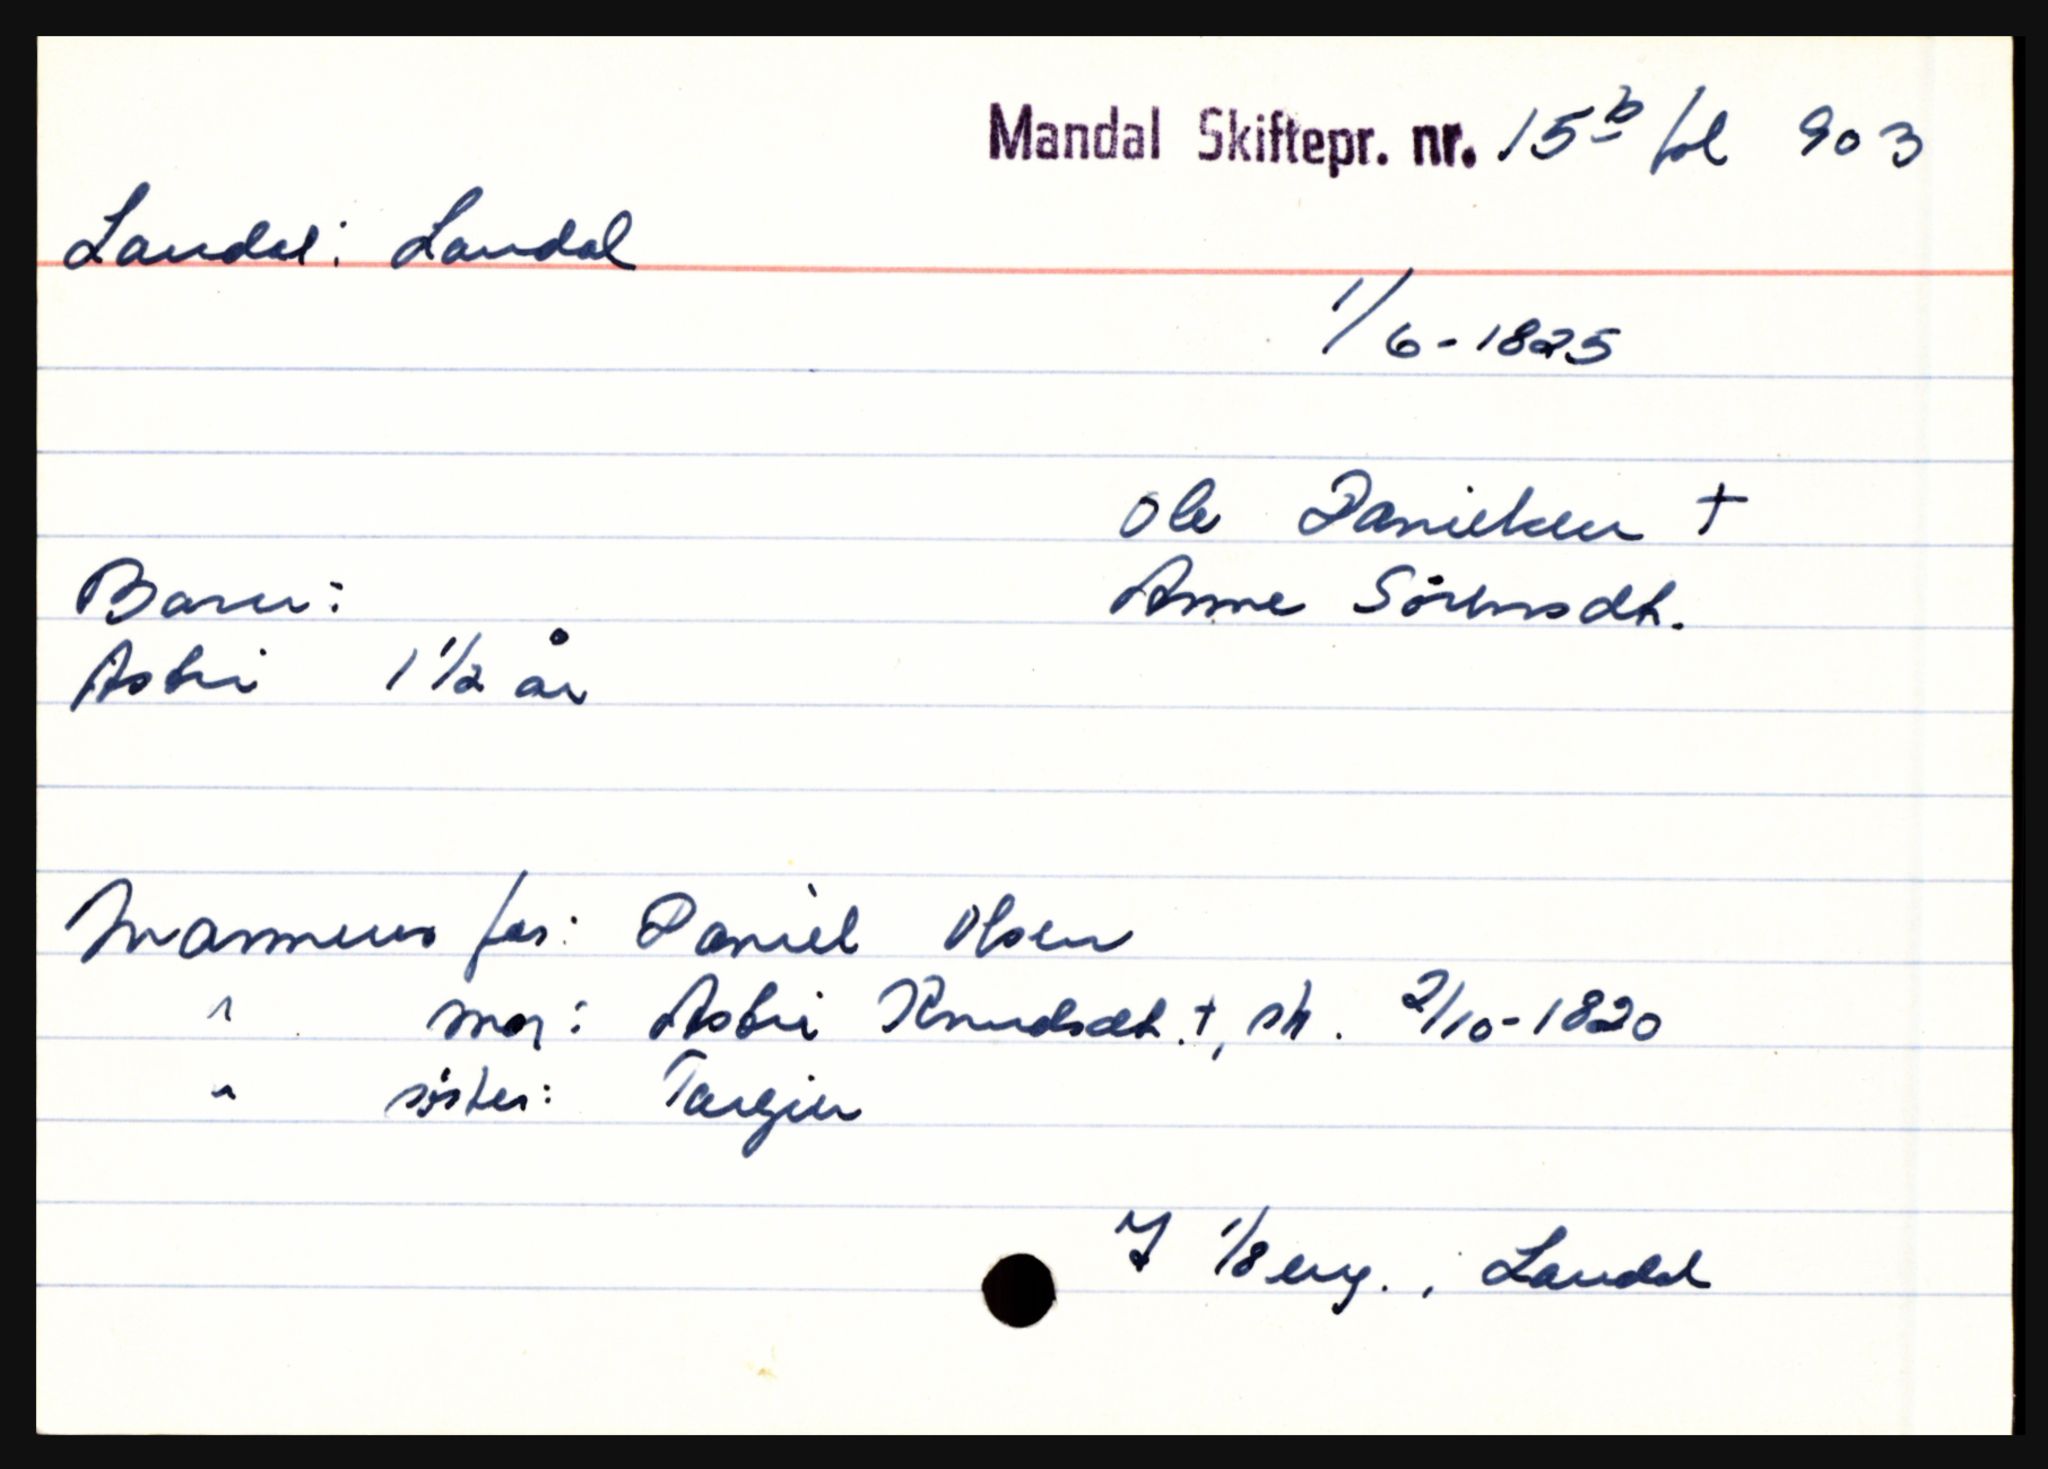 Mandal Skiftepr. nr. 15b fol 903
Laudal: Laudal
1/6-1825
Ole Danielsen †
Barn:
Anne Sörensdt.
Asbri 1 1/2 år
Mannens far: Daniel Olsen
" mor: Asbri Knudsdt. †, sk. 2/10-1820
" söster: Targier
J 1/8 eng. i Laudal